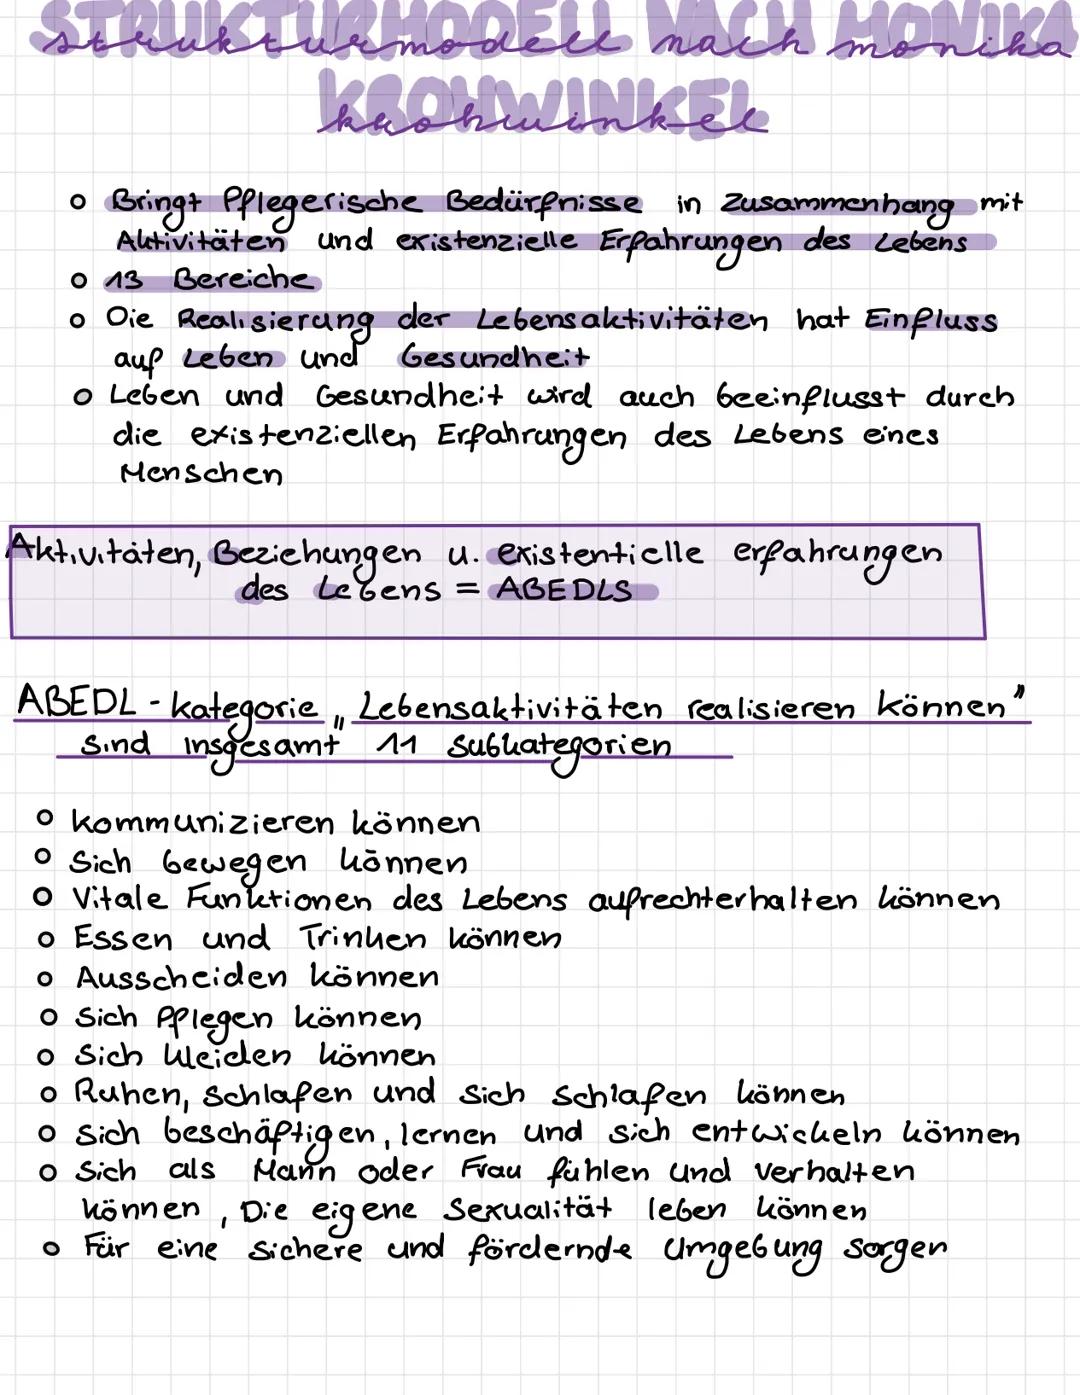 STRUKTURMODELL NACH MONIKA
strukturmodell nach monika
KROHWINKEL
krohwinkel
Bringt Pflegerische Bedürfnisse in Zusammenhang mit
Aktivitäten und existenzielle Erfahrungen des Lebens
13 Bereiche
Die Realisierung der Lebensaktivitäten hat Einfluss
auf Leben und Gesundheit
Leben und Gesundheit wird auch beeinflusst durch
die existenziellen Erfahrungen des Lebens eines
Menschen
Aktivitäten, Beziehungen u. existentielle erfahrungen
des Lebens = ABEDLS
ABEDL - kategorie „Lebensaktivitäten realisieren können"
sind insgesamt 11 Subkategorien
kommunizieren können
Sich bewegen können
Vitale Funktionen des Lebens aufrechterhalten können
Essen und Trinken können
Ausscheiden können
Sich Pflegen können
Sich kleiden können
Ruhen, Schlafen und sich schlafen können
Sich beschäftigen, lernen und sich entwickeln können
Sich als Mann oder Frau fühlen und verhalten
können, Die eigene Sexualität leben können
Für eine sichere und fördernde Umgebung sorgen